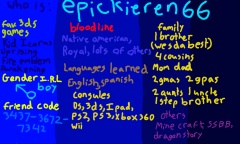 who is:
epickieren66
fav 3ds
games
Kid Icarus
Uprising
Fire emblem
Awakening
Gender I.R.L
boy
friend code
3437-3672-
7342
bloodline
Native american,
Royal, lots of others
Languages learned
English, spanish
Consules
Ds, 3ds, Ipad,
Ps2, PS3, Xbox360
Wii
family
1 brother
(wes da best)
4 cousins
Mom dad
2 gnas 2 gpas
2 aunts 1 uncle
1 step brother
others
Mine craft SSBB,
dragon story